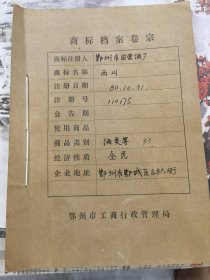 商标档案卷宗
商标注册人 鄂州市国营酒厂
商标名称 西山
注册日期 80.10.31.
注册号 110175
公告期
使用商品
商品类别 酒类等 33
经济性质 全民
企业地址 鄂州市鄂城区
鄂州市工商行政管理局